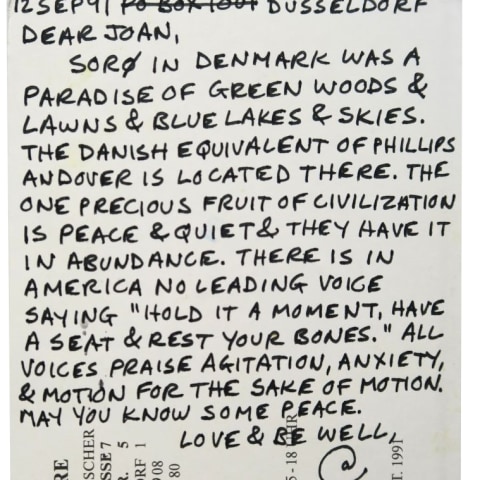 12 SEP 91 PO BOX 1001 DÜSSELDORF
DEAR JOAN,
SORØ IN DENMARK WAS A
PARADISE OF GREEN WOODS &
LAWNS & BLUE LAKES & SKIES.
THE DANISH EQUIVALENT OF PHILLIPS
ANDOVER IS LOCATED THERE. THE
ONE PRECIOUS FRUIT OF CIVILIZATION
IS PEACE & QUIET & THEY HAVE IT
IN ABUNDANCE. THERE IS IN
AMERICA NO LEADING VOICE
SAYING "HOLD IT A MOMENT, HAVE
A SEAT & REST YOUR BONES." ALL
VOICES PRAISE AGITATION, ANXIETY,
& MOTION FOR THE SAKE OF MOTION.
MAY YOU KNOW SOME PEACE.
LOVE & BE WELL,
RE
SCHER
SSE 7
R. 5
ORF 1
08
80
5 - 18 UHR
T. 1991